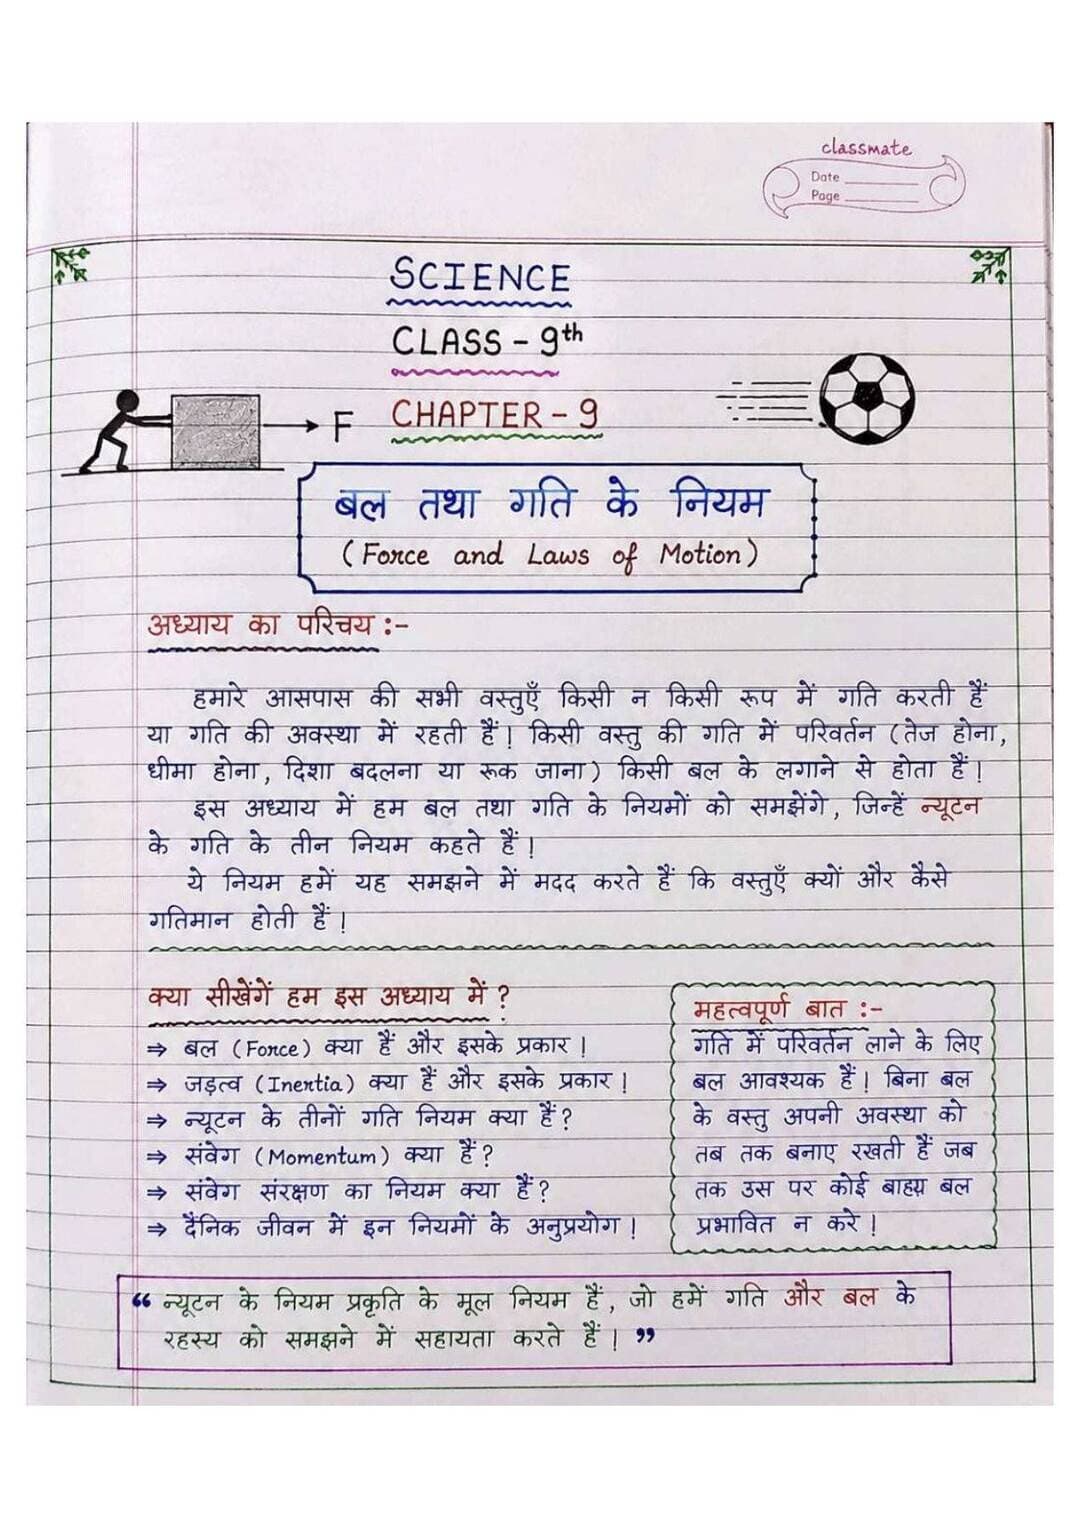 classmate
Date
Page
SCIENCE
CLASS - 9th
CHAPTER - 9
F
बल तथा गति के नियम
(Force and Laws of Motion)
अध्याय का परिचय :-
हमारे आसपास की सभी वस्तुएँ किसी न किसी रूप में गति करती हैं
या गति की अवस्था में रहती हैं। किसी वस्तु की गति में परिवर्तन (तेज होना,
धीमा होना, दिशा बदलना या रूक जाना) किसी बल के लगाने से होता हैं।
इस अध्याय में हम बल तथा गति के नियमों को समझेंगे, जिन्हें न्यूटन
के गति के तीन नियम कहते हैं।
ये नियम हमें यह समझने में मदद करते हैं कि वस्तुएँ क्यों और कैसे
गतिमान होती हैं।
क्या सीखेंगें हम इस अध्याय में ?
⇒ बल (Force) क्या हैं और इसके प्रकार।
⇒ जड़त्व (Inertia) क्या हैं और इसके प्रकार।
⇒ न्यूटन के तीनों गति नियम क्या हैं?
⇒ संवेग (Momentum) क्या हैं?
⇒ संवेग संरक्षण का नियम क्या हैं?
⇒ दैनिक जीवन में इन नियमों के अनुप्रयोग।
महत्वपूर्ण बात :-
गति में परिवर्तन लाने के लिए
बल आवश्यक हैं। बिना बल
के वस्तु अपनी अवस्था को
तब तक बनाए रखती हैं जब
तक उस पर कोई बाहय बल
प्रभावित न करे।
“ न्यूटन के नियम प्रकृति के मूल नियम हैं, जो हमें गति और बल के
रहस्य को समझने में सहायता करते हैं। ”